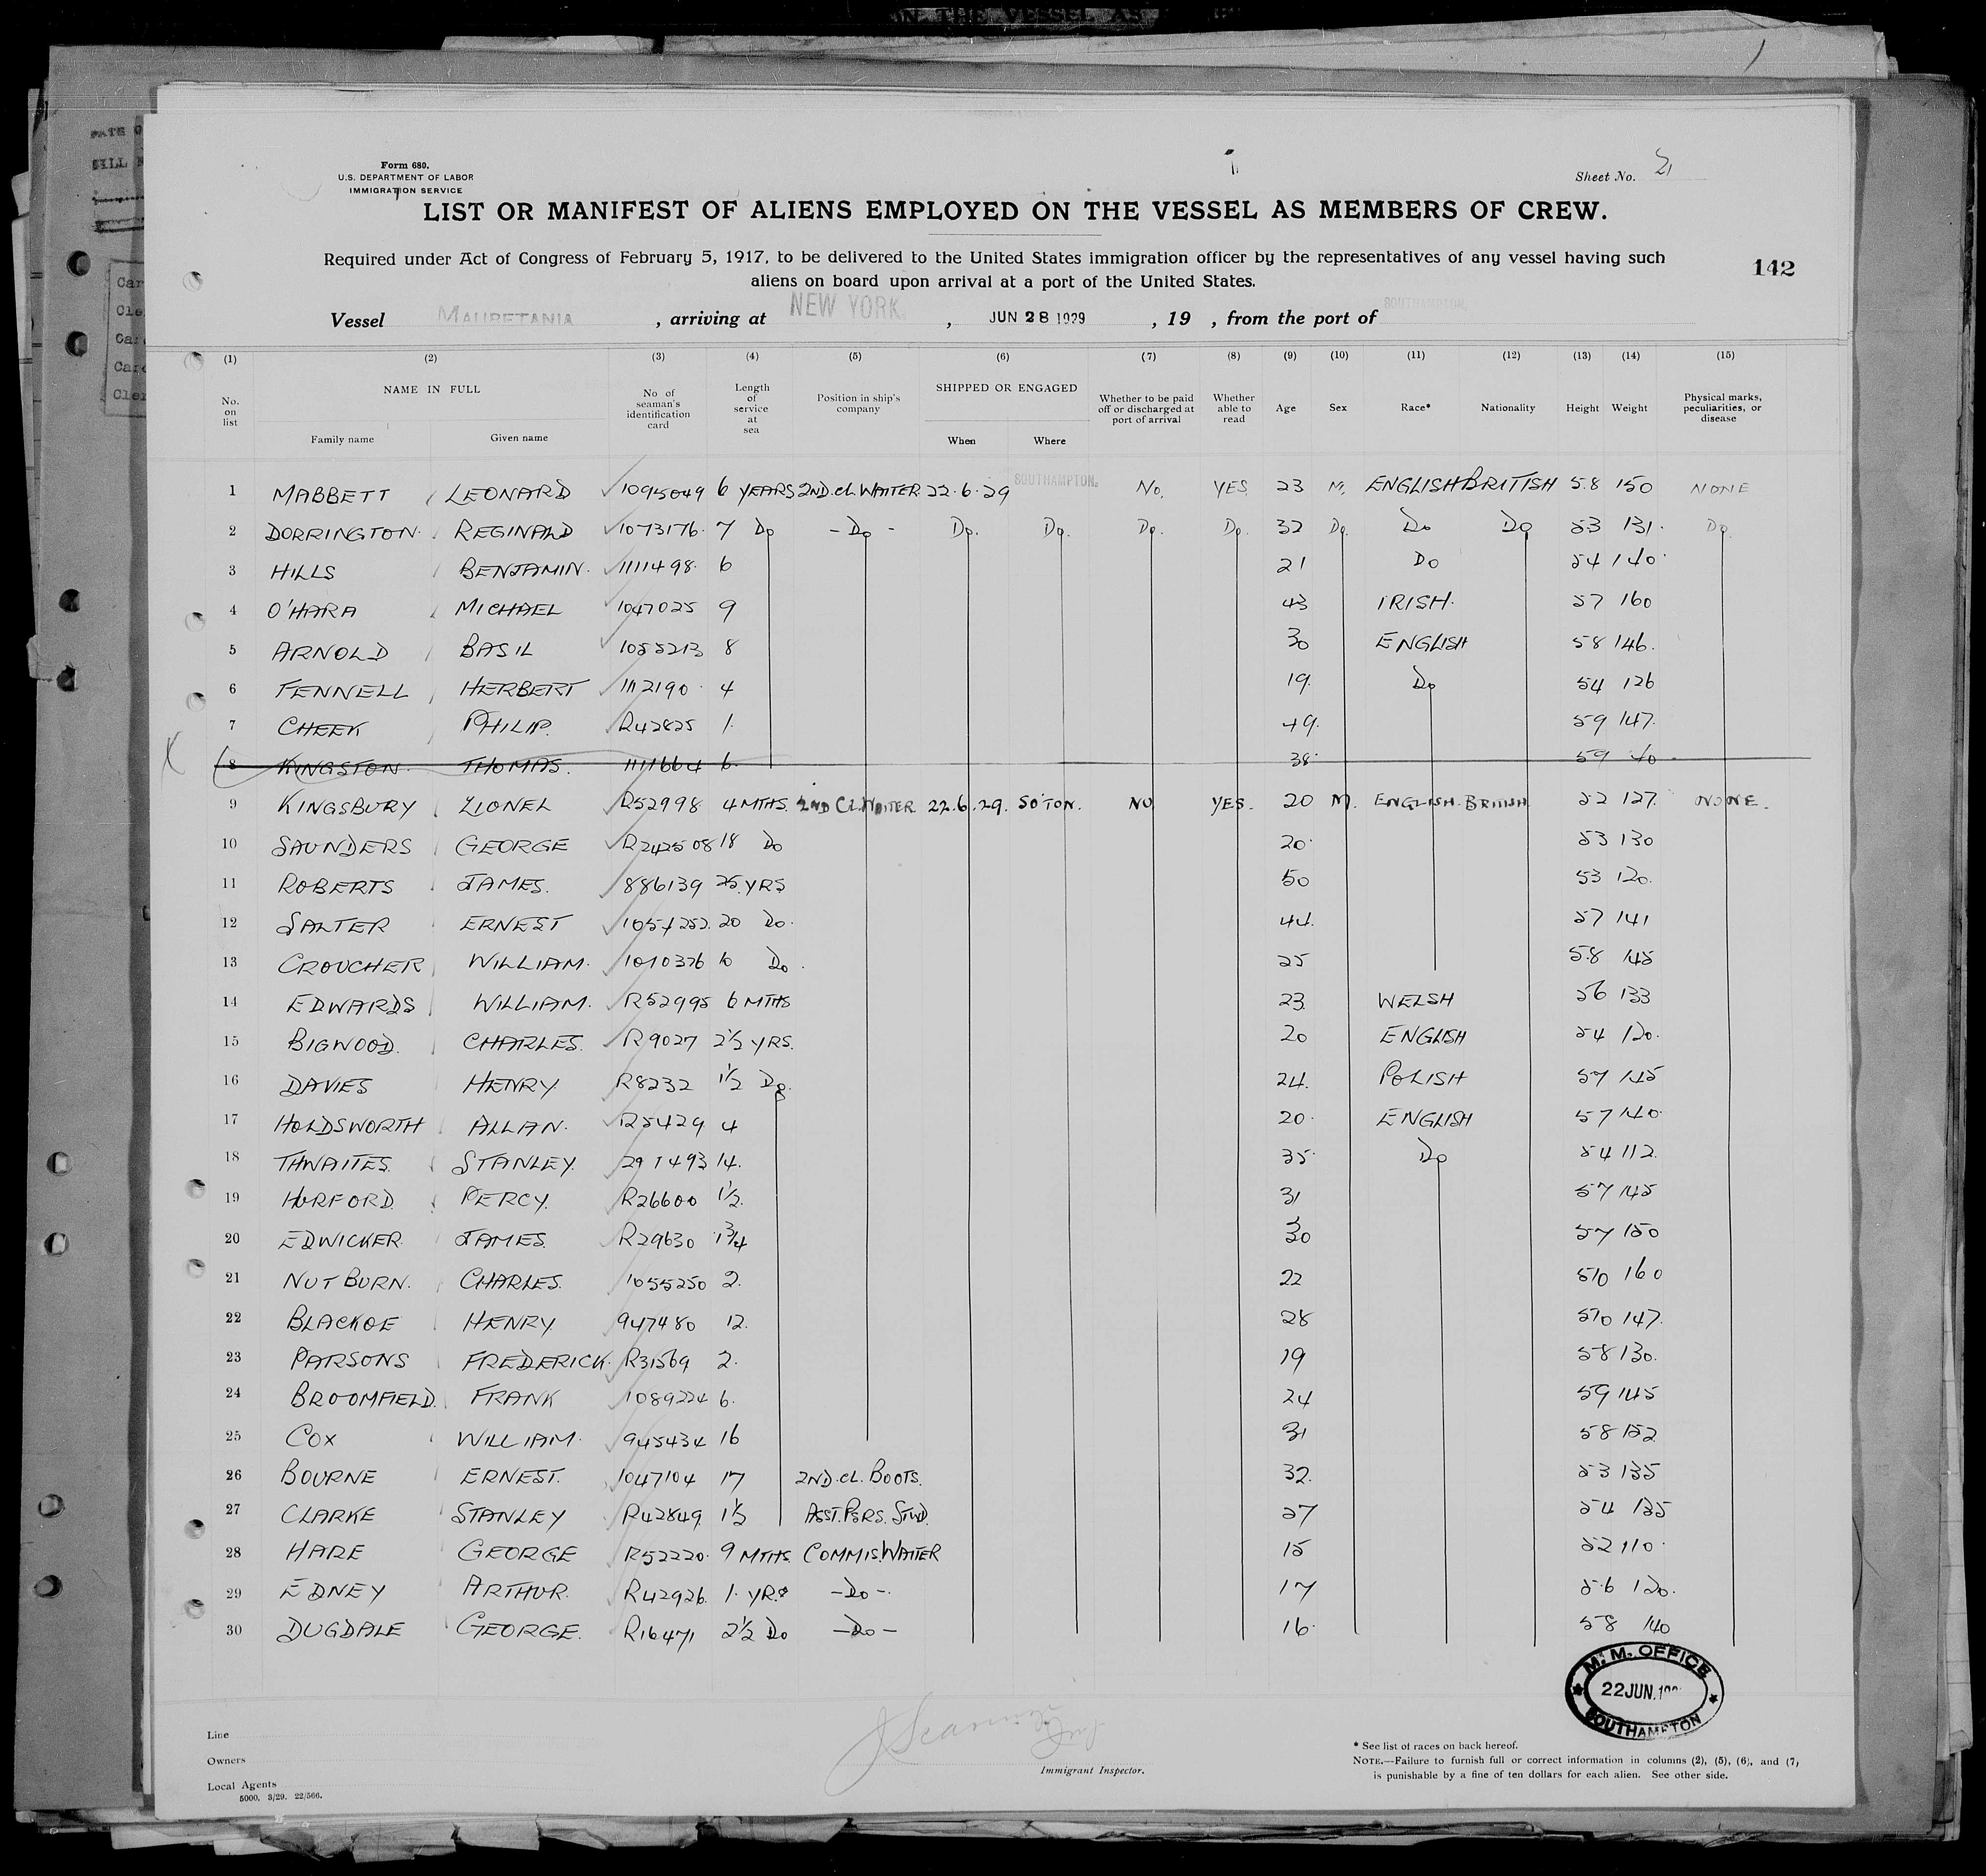 Form 680.
U.S. DEPARTMENT OF LABOR
IMMIGRATION SERVICE
Sheet No. 21
LIST OR MANIFEST OF ALIENS EMPLOYED ON THE VESSEL AS MEMBERS OF CREW.
Required under Act of Congress of February 5, 1917, to be delivered to the United States immigration officer by the representatives of any vessel having such
aliens on board upon arrival at a port of the United States.
142
Vessel MAURETANIA, arriving at NEW YORK, JUN 28 1929, 19 , from the port of SOUTHAMPTON.
(1) (2) (3) (4) (5) (6) (7) (8) (9) (10) (11) (12) (13) (14) (15)
No. on list NAME IN FULL Family name Given name No of seaman's identification card Length of service at sea Position in ship's company SHIPPED OR ENGAGED When Where Whether to be paid off or discharged at port of arrival Whether able to read Age Sex Race* Nationality Height Weight Physical marks, peculiarities, or disease
1 MABBETT LEONARD 1095049 6 YEARS 2ND.CL.WAITER 22.6.29 SOUTHAMPTON. No. YES 23 M. ENGLISH BRITISH 5.8 150 NONE
2 DORRINGTON. REGINALD 1073176. 7 Do - Do - Do. Do. Do. Do. 32 Do. Do Do 53 131. Do
3 HILLS BENJAMIN. 1111498. 6 21 Do 54 140
4 O'HARA MICHAEL 1047025 9 43 IRISH. 57 160
5 ARNOLD BASIL 1055213 8 30 ENGLISH 58 146.
6 FENNELL HERBERT 1112190. 4 19. Do 54 126
7 CHEEK PHILIP. R42825 1. 49. 59 147.
8 KINGSTON. THOMAS. 1111664 6. 38. 59
9 KINGSBURY LIONEL R52998 4 MTHS. 2ND CL.WAITER 22.6.29. SO'TON. NO YES. 20 M. ENGLISH. BRITISH 52 127. NONE.
10 SAUNDERS GEORGE R242508 18 Do 20. 53 130
11 ROBERTS JAMES. 886139 25. YRS 50 53 120.
12 SALTER ERNEST 20 Do. 44. 57 141
13 CROUCHER WILLIAM. 1010376 10 Do. 25 58 145
14 EDWARDS WILLIAM. R52995 6 MTHS 23. WELSH 56 133
15 BIGWOOD. CHARLES. R9027 2½ YRS. 20 ENGLISH 54 120.
16 DAVIES HENRY. R8232 1½ Do. 24. POLISH 57 145
17 HOLDSWORTH ALLAN. R25429 4 20. ENGLISH 57 140.
18 THWAITES. STANLEY. 291493 14. 35. Do 54 112.
19 HURFORD. PERCY. R26600 1½. 31 57 145
20 EDWICKER. JAMES. R29630 1¾ 30 57 150
21 NUTBURN. CHARLES. 1055250 2. 22 510 160
22 BLACKOE HENRY 947480 12. 28 510 147.
23 PARSONS FREDERICK. R31569 2. 19 58 130.
24 BROOMFIELD. FRANK 1089224 6. 24 59 145
25 COX WILLIAM. 945434 16 31 58 152
26 BOURNE ERNEST. 1047104 17 2ND.CL.BOOTS. 32. 53 135
27 CLARKE STANLEY R42849 1½ ASST.PSRS.STWD. 27 54 135
28 HARE GEORGE R52220. 9 MTHS. COMMIS.WAITER 15 52 110.
29 EDNEY ARTHUR. R42926. 1. YR. -Do-. 17 5.6 120.
30 DUGDALE GEORGE. R16471 2½ Do -Do- 16. 58 140
M. M. OFFICE
22 JUN.
SOUTHAMPTON
Line
Owners
Local Agents
5000. 3/29. 22/566.
Immigrant Inspector.
* See list of races on back hereof.
NOTE.—Failure to furnish full or correct information in columns (2), (5), (6), and (7)
is punishable by a fine of ten dollars for each alien. See other side.